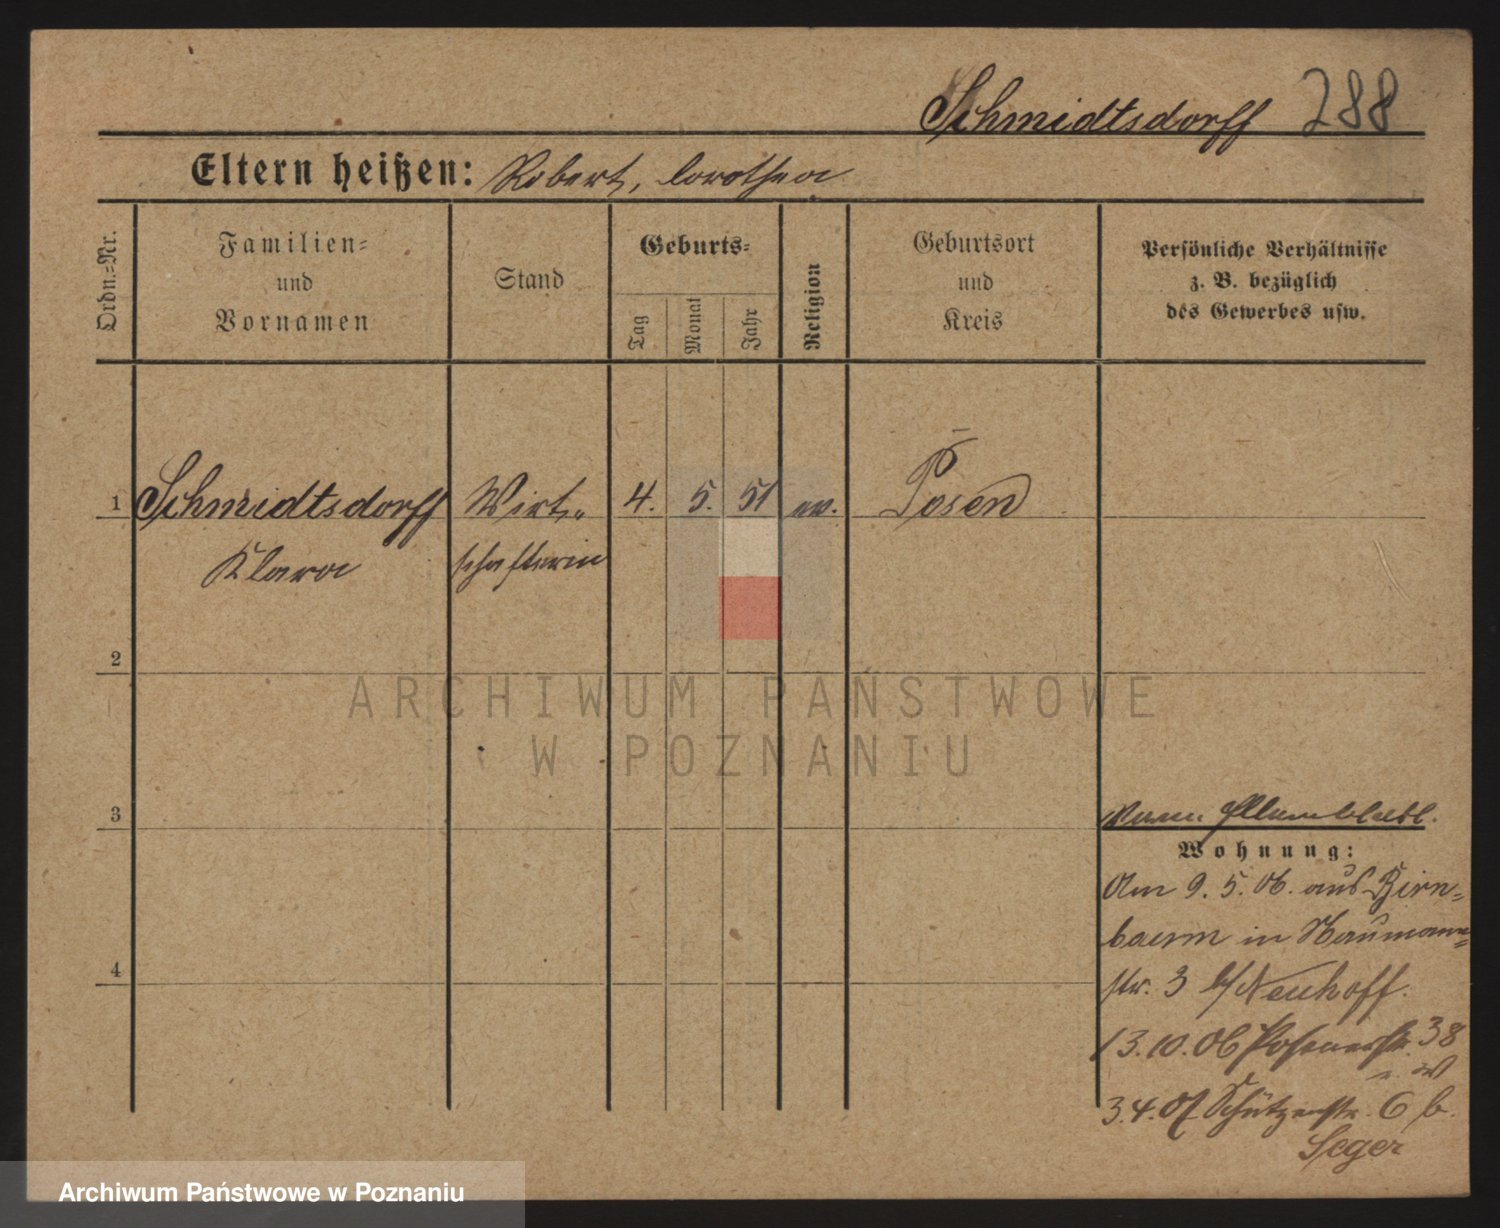 Schmidtsdorff 288
Eltern heißen: Robert, Dorothea
Ordn.-Nr.
Familien-
und
Vornamen
Stand
Geburts-
Tag
Monat
Jahr
Religion
Geburtsort
und
Kreis
Persönliche Verhältnisse
z. B. bezüglich
des Gewerbes usw.
1 Schmidtsdorff Wirt- 4. 5. 51 ev. Posen
Klara schafterin
2
ARCHIWUM PAŃSTWOWE
W POZNANIU
3
Wohnung:
Am 9. 5. 06. aus Birn-
baum in Naumann-
4
str. 3 b/Neuhoff.
13.10.06 Posenerstr. 38
3.4.07 Schützenstr. 6 b.
Seger
Archiwum Państwowe w Poznaniu